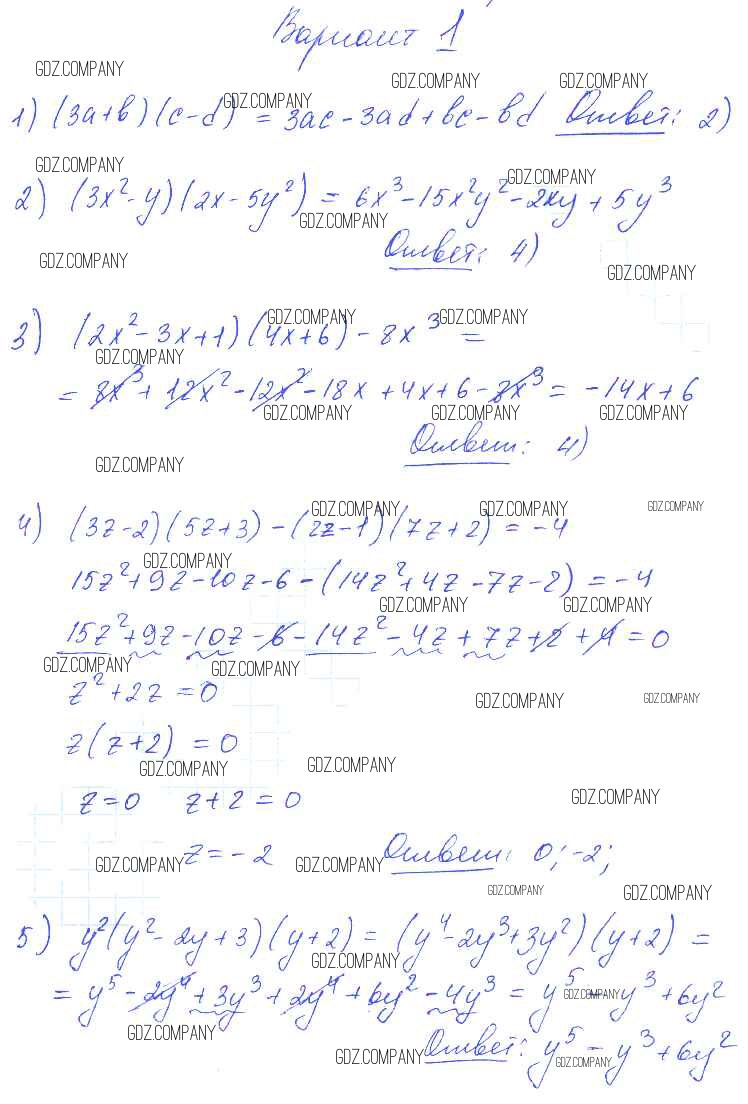 Вариант 1
GDZ.COMPANY GDZ.COMPANY GDZ.COMPANY
GDZ.COMPANY
1) (3a+b)(c-d) = 3ac-3ad+bc-bd Ответ: 2)
GDZ.COMPANY GDZ.COMPANY
2) (3x²-y)(2x-5y²) = 6x³-15x²y²-2xy+5y³
GDZ.COMPANY
Ответ: 4)
GDZ.COMPANY GDZ.COMPANY
GDZ.COMPANY GDZ.COMPANY
3) (2x²-3x+1)(4x+6)-8x³ =
GDZ.COMPANY
= 8x³+12x²-12x²-18x+4x+6-8x³ = -14x+6
GDZ.COMPANY GDZ.COMPANY GDZ.COMPANY
Ответ: 4)
GDZ.COMPANY
GDZ.COMPANY GDZ.COMPANY GDZ.COMPANY
4) (3z-2)(5z+3)-(2z-1)(7z+2) = -4
GDZ.COMPANY
15z²+9z-10z-6-(14z²+4z-7z-2) = -4
GDZ.COMPANY GDZ.COMPANY
15z²+9z-10z-6-14z²-4z+7z+2+4 = 0
GDZ.COMPANY GDZ.COMPANY
z²+2z = 0
GDZ.COMPANY GDZ.COMPANY
z(z+2) = 0
GDZ.COMPANY GDZ.COMPANY
z=0 z+2=0
GDZ.COMPANY
z=-2 Ответ: 0; -2;
GDZ.COMPANY GDZ.COMPANY
GDZ.COMPANY GDZ.COMPANY
5) y²(y²-2y+3)(y+2) = (y⁴-2y³+3y²)(y+2) =
GDZ.COMPANY
= y⁵-2y⁴+3y³+2y⁴+6y²-4y³ = y⁵-y³+6y²
GDZ.COMPANY
GDZ.COMPANY
Ответ: y⁵-y³+6y²
GDZ.COMPANY GDZ.COMPANY